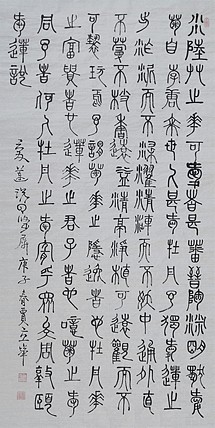 水陸艸木之華可愛者甚蕃晉陶淵明獨愛
菊自李唐來世人甚愛牡丹予獨愛蓮之
出淤泥而不染濯清漣而不妖中通外直
不蔓不枝香遠益清亭亭淨植可遠觀而不
可褻玩焉予謂菊華之隱逸者也牡丹華
之富貴者也蓮華之君子者也噫菊之愛
同予者何人牡丹之愛宜乎眾矣周敦頤
愛蓮說
愛蓮說 庚子春賈立